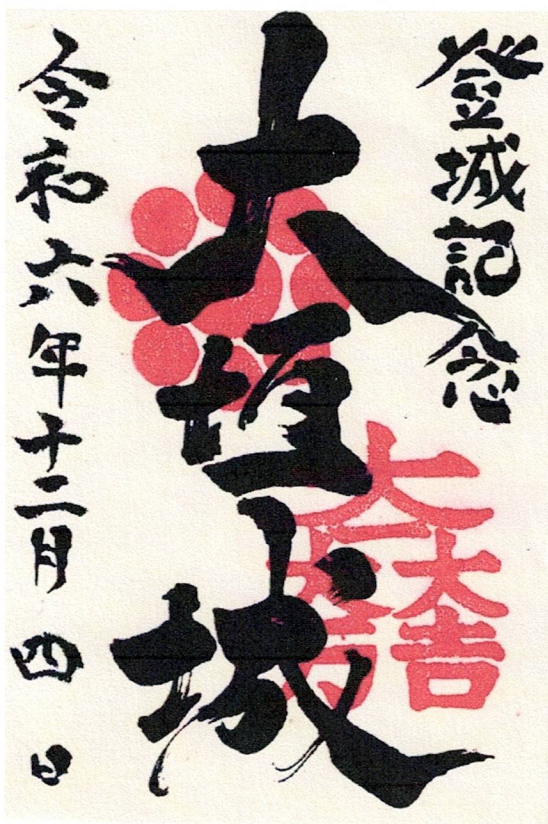 登城記念
大垣城
大一大万大吉
令和六年十二月四日